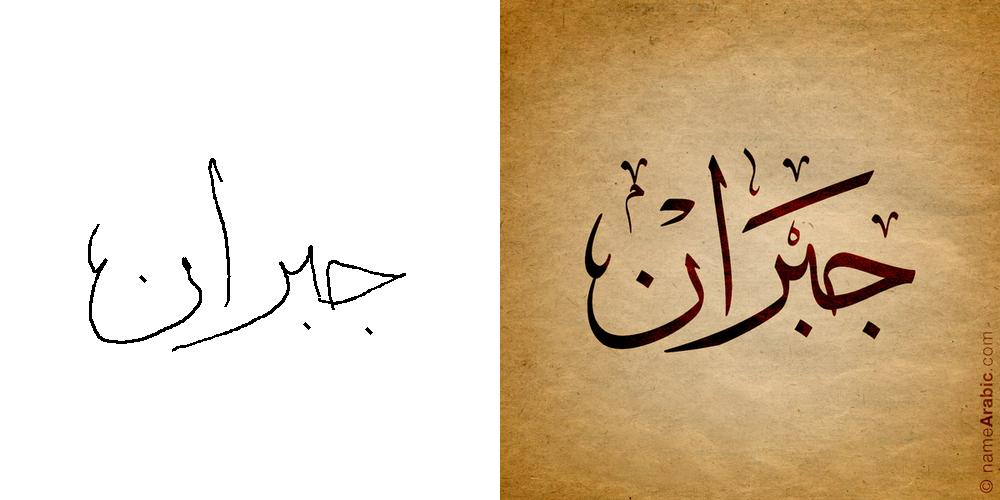 جبران
جبران
© nameArabic.com